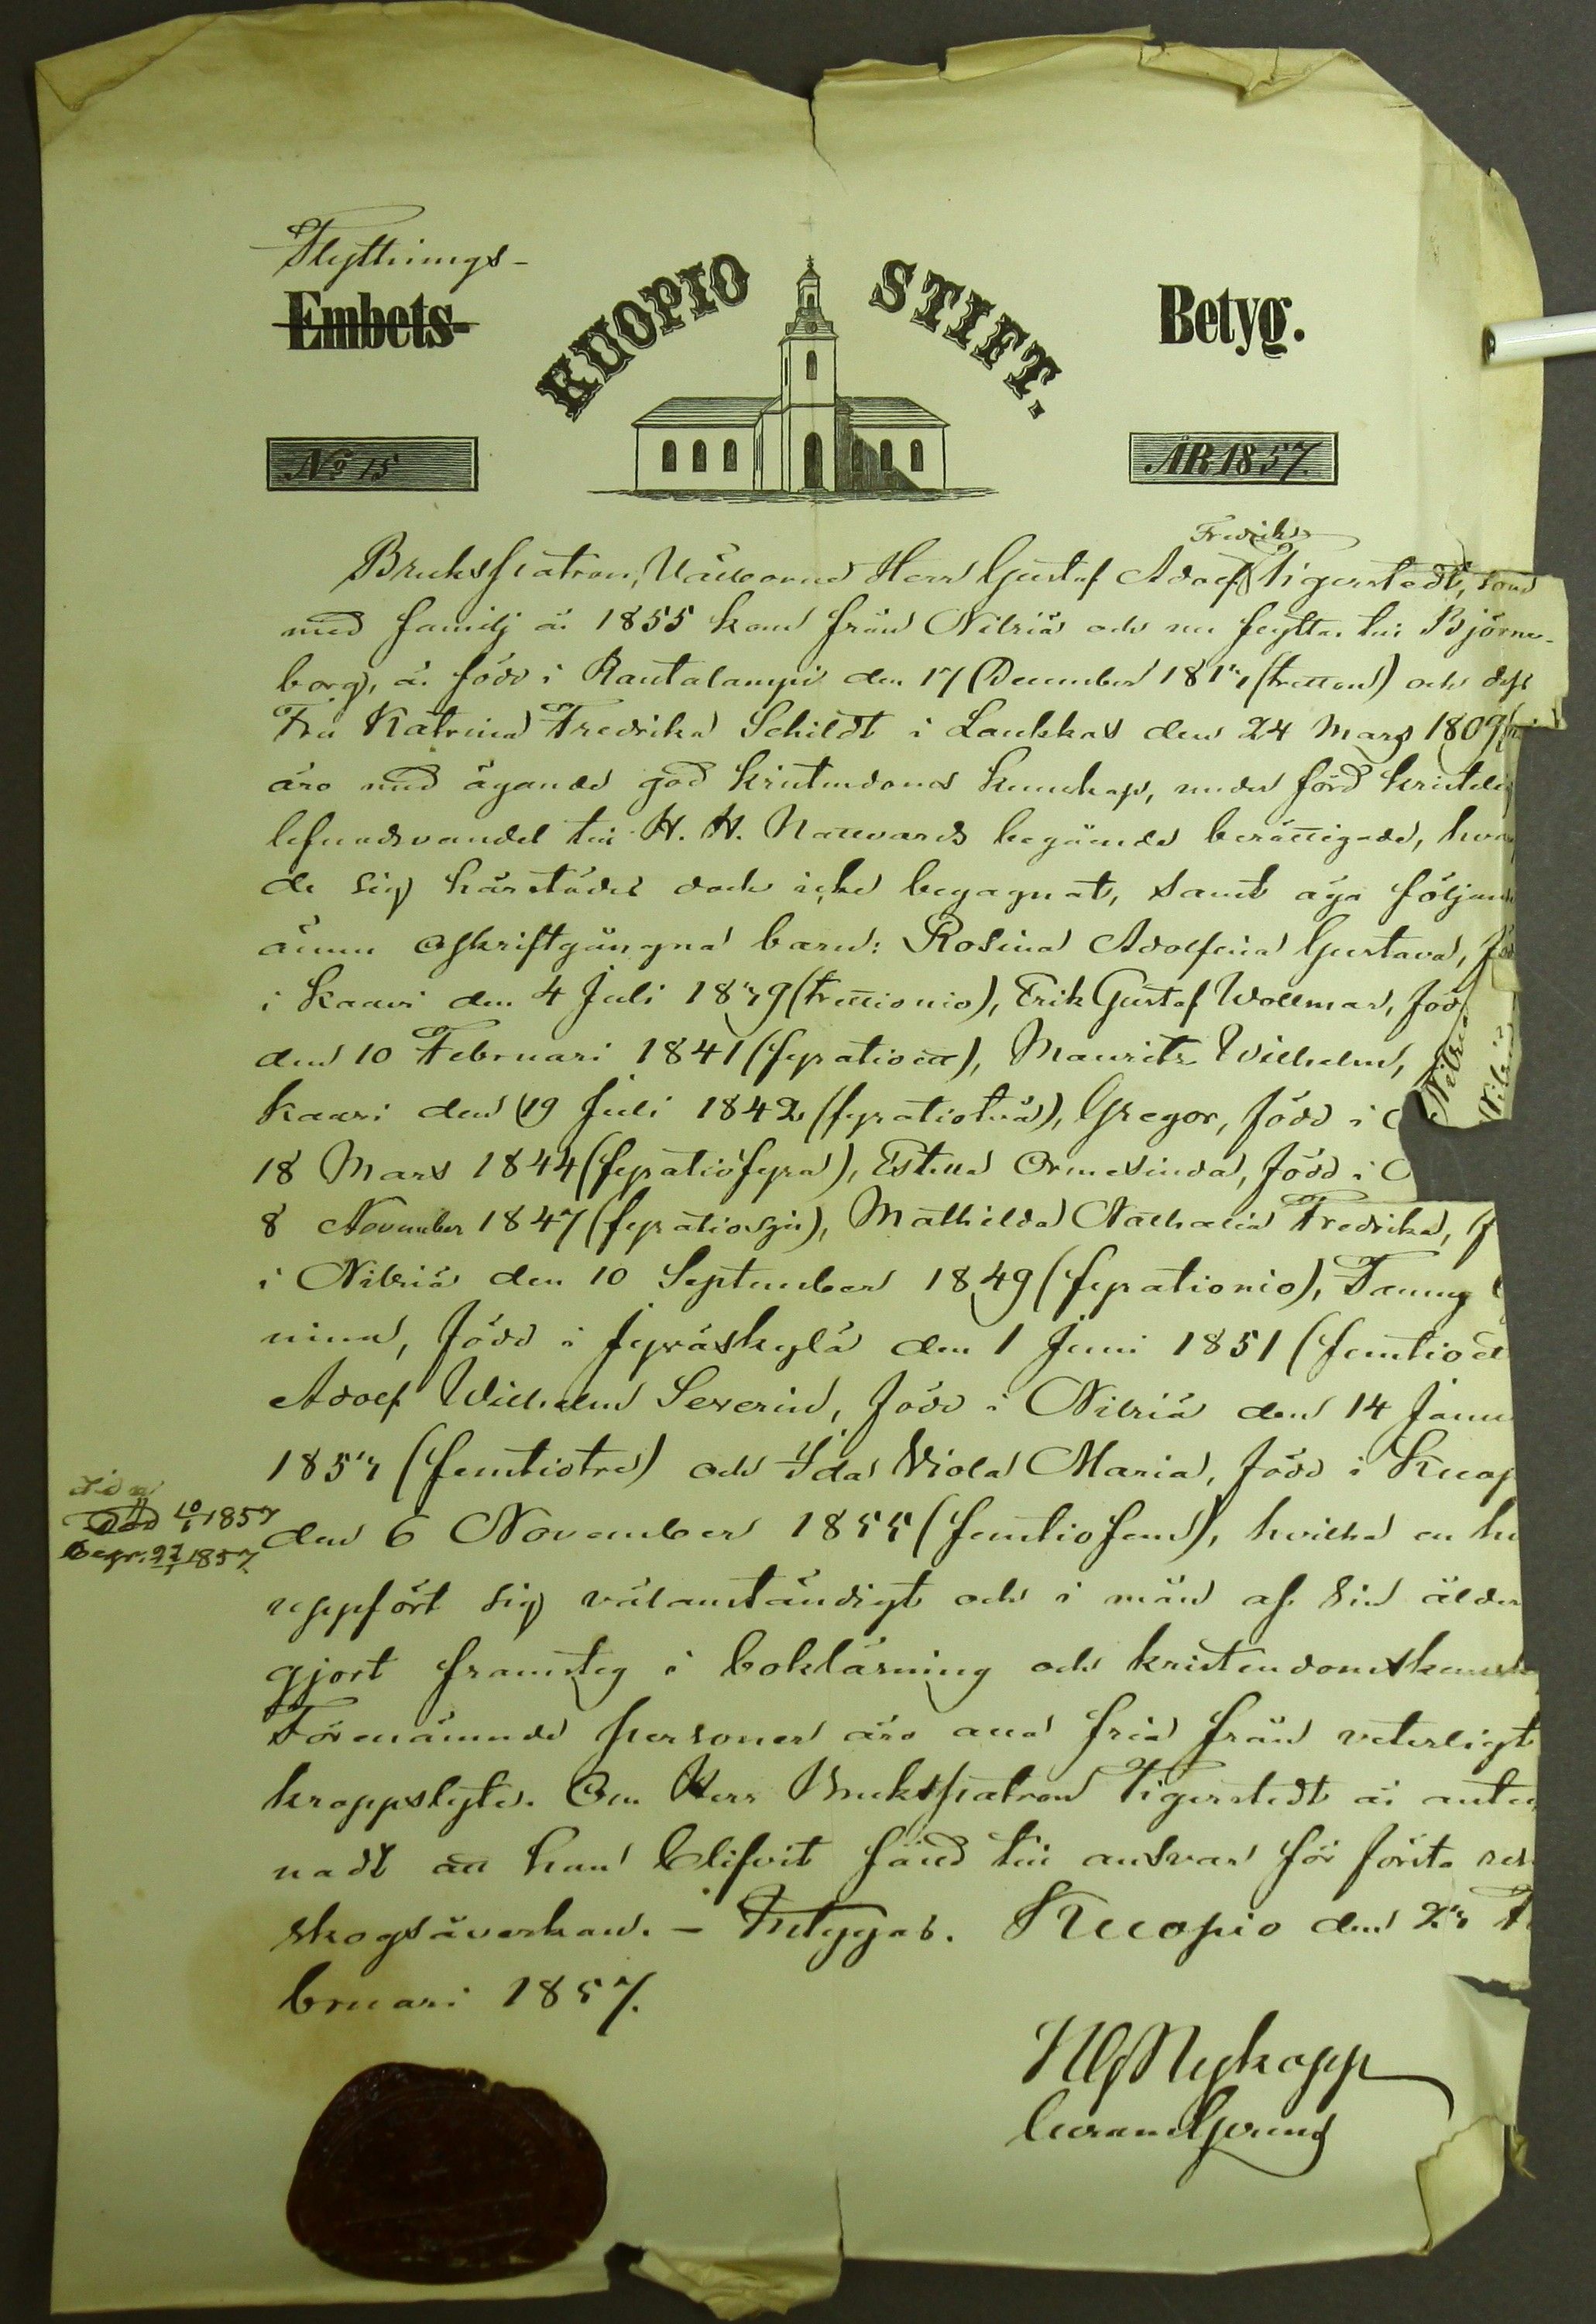 Flyttnings-
Embets-
KUOPIO STIFT.
Betyg.
No 15
ÅR 1857.
Fredrik
Brukspatron, Välborne Herr Gustaf Adolf Tigerstedt, som
med familj år 1855 kom från Nilsiä och nu flyttar till Björne-
borg, är född i Rautalampi den 17 December 1813 (tretton) och dess
Fru Katrina Fredrika Schildt i Laukkas den 24 Mars 1809
äro med ägande god kristendoms kunskap, under förd kristelig
lefnadsvandel till H. H. Nattvards begående berättigade, hvaraf
de sig härstädes dock icke begagnat, samt äga följande
ännu oskriftgångna barn: Rosina Adolfina Gustava, född
i Kaavi den 4 Juli 1839 (trettionio), Erik Gustaf Wollmar, född
den 10 Februari 1841 (fyratioett), Maurits Wilhelm,
Nilsiä
Nilsiä
Kaavi den 19 Juli 1842 (fyratiotvå), Gregor, född i
18 Mars 1844 (fyratiofyra), Estella Ormesinda, född i
8 November 1847 (fyratiosju), Mathilda Nathalia Fredrika, f
i Nilsiä den 10 September 1849 (fyrationio), Fanny
nina, född i Jyväskylä den 1 Juni 1851 (femtioett
Adolf Wilhelm Severin, född i Nilsiä den 14 Janu
1853 (femtiotre) och Ida Viola Maria, född i Kuop
död 10/1 1857
begr. 22/1 1857.
den 6 November 1855 (femtiofem), hvilka en hv
uppfört sig välanständigt och i mån af sin ålder
gjort framsteg i boklärning och kristendomskunska
Förenämnde personer äro alla fria från veterligt
kroppslyte. Om Herr Brukspatron Tigerstedt är anteck
nadt att han blifvit fälld till ansvar för första resan
skogsåverkan. – Betygas. Kuopio den 23 Fe
bruari 1857.
Nykopp